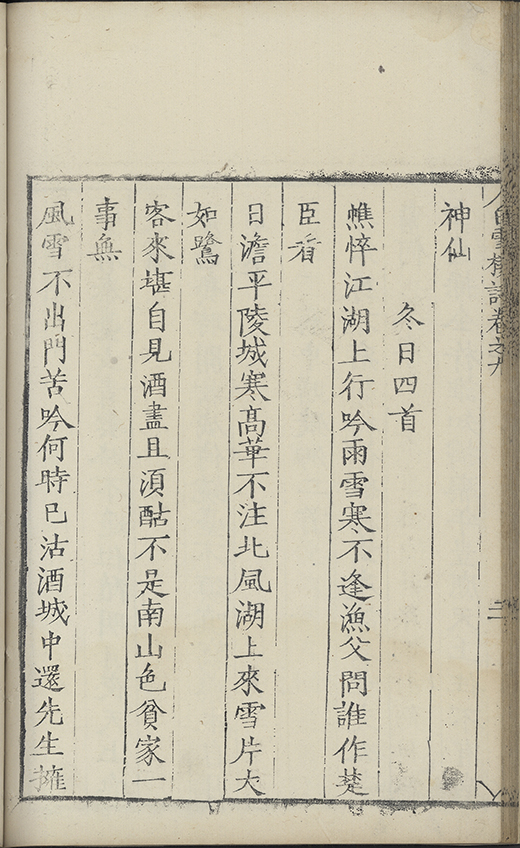 白雪樓詩卷之九
二
神仙
冬日四首
憔悴江湖上行吟雨雪寒不逢漁父問誰作楚
臣看
日澹平陵城寒高華不注北風湖上來雪片大
如鷺
客來堪自見酒盡且須酤不是南山色貧家一
事無
風雪不出門苦吟何時已沽酒城中還先生擁